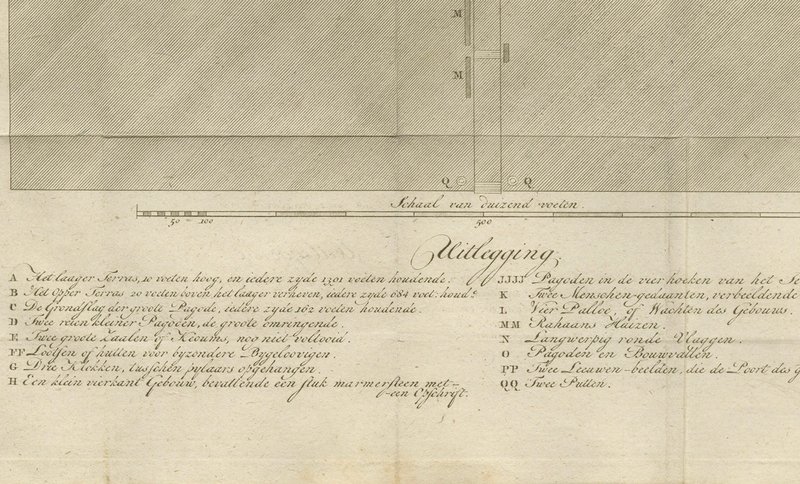 M
M
Q Q
Schaal van duizend voeten.
50 100 500
Uitlegging.
A Het laager Terras, 10 voeten hoog, en iedere zyde 1391 voeten houdende.
B Het opper Terras 20 voeten boven het laager verheven, iedere zyde 684 voet: houd:
C De Grondslag der groote Pagode, iedere zyde 162 voeten houdende.
D Twee reien kleiner Pagoden, de groote omringende.
E Twee groote Zaalen of Kioums, nog niet voltooid.
FF Loodsen of hutten voor byzondere Bygeloovigen.
G Drie Klokken, tusschen pylaars opgehangen.
H Een klein vierkant Gebouw, bevattende een stuk marmersteen met
een Opschrift.
JJJJ Pagoden in de vier hoeken van het
K Twee Menschen-gedaanten, verbeeldende
L Vier Palloe, of Wachten des Gebouws.
MM Rahaans Huizen.
N Langwerpig ronde Vlaggen.
O Pagoden en Bouwvallen.
PP Twee Leeuwen-beelden, die de Poort des
QQ Twee Putten.